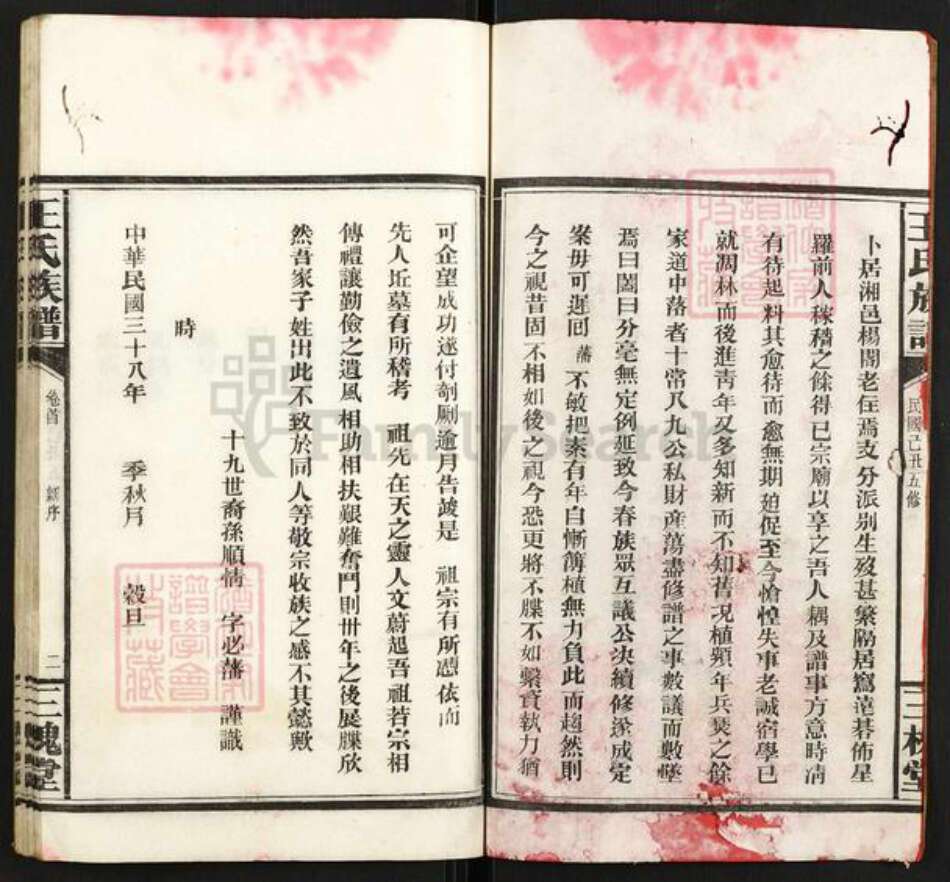 王氏族譜
民國己丑五修
三槐堂
卜居湘邑楊閣老住焉支分派别生歿甚繁隔居窵遠碁佈星
羅前人稼穡之餘得已宗廟以享之吾人耦及譜事方意時凊
有待起料其愈待而愈無期廹促至今愴惶失事老誠宿學已
就凋林而後進靑年又多知新而不知舊况植頻年兵燹之餘
家道中落者十常八九公私財产蕩盡修譜之事數議而數墜
焉曰闔曰分毫無定例延致今春族眾互議公決續修遂成定
案毋可遲回 藩 不敏把案有年自慚薄植無力負此而趨然則
今之視昔固不相如後之視今恐更將不牒不如繫資執力猶
可企望成功遂付剞劂逾月告竣是 祖宗有所憑依而
先人坵墓有所稽考 祖先在天之靈人文蔚起吾祖若宗相
傳禮讓勤儉之遺風相助相扶艱難奮鬥則卅年之後展牒欣
然吾家子姓出此不致於同人等敬宗收族之感不其懿歟
十九世裔孫順情 字必藩 謹識
時
中華民國三十八年 季秋月 穀旦
王氏族譜
卷首 序
二
三槐堂
FamilySearch